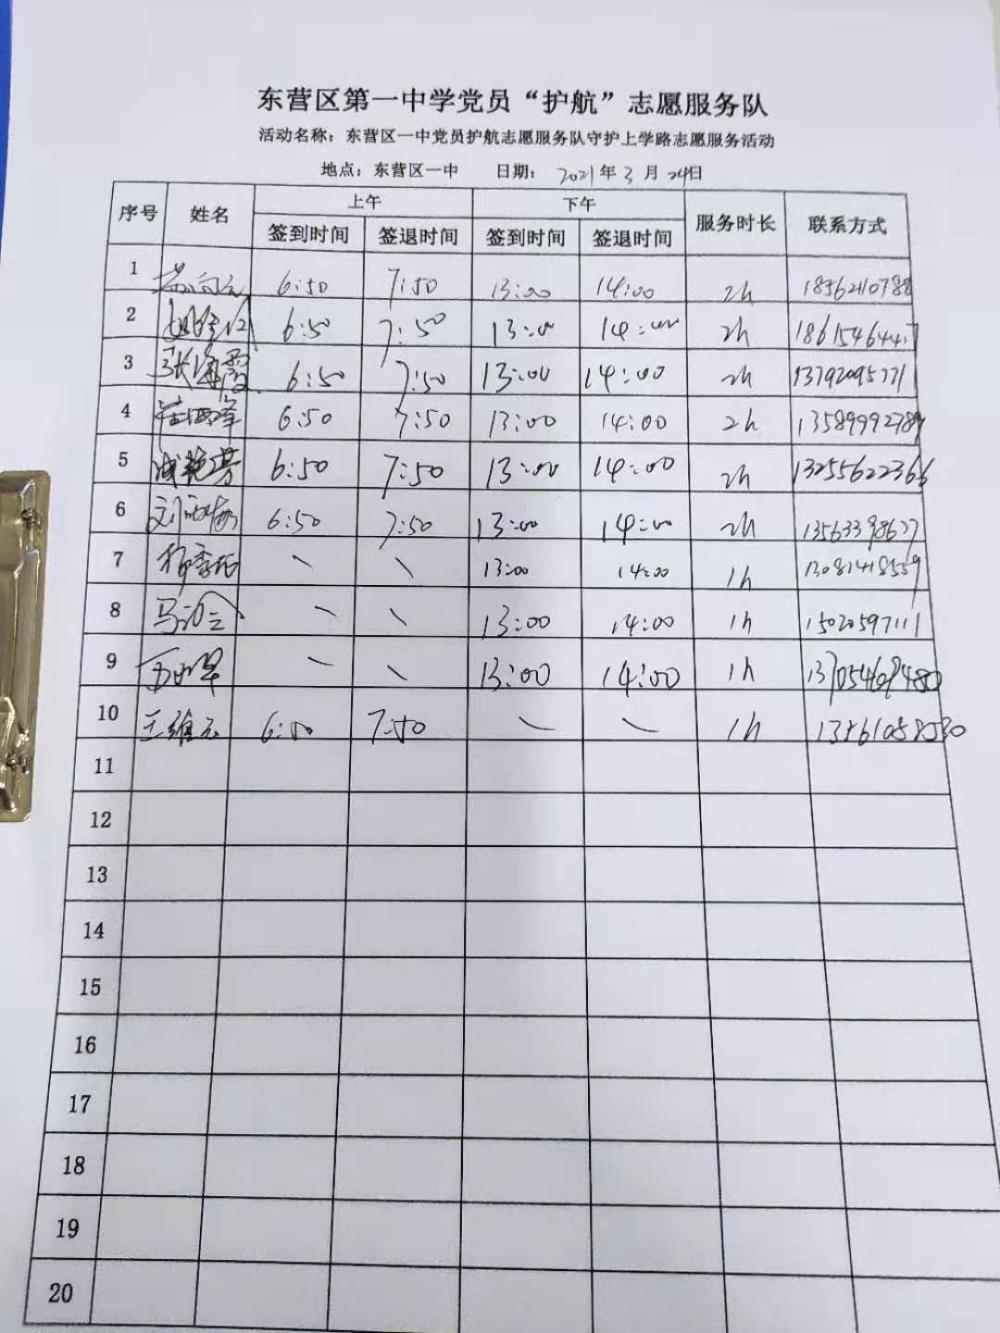 东营区第一中学党员“护航”志愿服务队
活动名称：东营区一中党员护航志愿服务队守护上学路志愿服务活动
地点：东营区一中 日期：2021年3月24日
序号 姓名 上午 下午 服务时长 联系方式
签到时间 签退时间 签到时间 签退时间
1 6:50 7:50 13:00 14:00 2h
2 6:50 7:50 13:00 14:00 2h
3 张海霞 6:50 7:50 13:00 14:00 2h 13792095771
4 6:50 7:50 13:00 14:00 2h 13589992789
5 成艳芳 6:50 7:50 13:00 14:00 2h 13255622366
6 6:50 7:50 13:00 14:00 2h 13563398677
7 \ \ 13:00 14:00 1h 13081418559
8 \ \ 13:00 14:00 1h 15020597111
9 \ \ 13:00 14:00 1h
10 王维元 6:50 7:50 \ \ 1h 13561058530
11
12
13
14
15
16
17
18
19
20